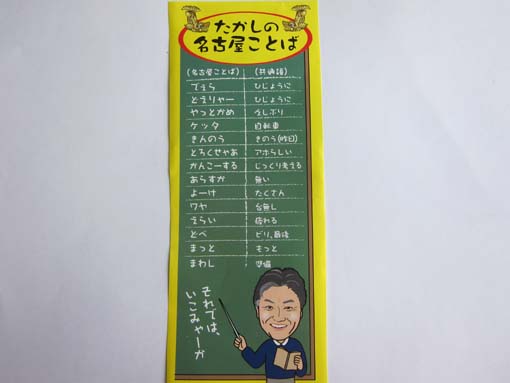 たかしの
名古屋ことば
(名古屋ことば) (共通語)
でえら ひじょうに
どえりゃー ひじょうに
やっとかめ 久しぶり
ケッタ 自転車
きんのう きのう(昨日)
とろくせゃあ アホらしい
かんこーする じっくり考える
あらすか 無い
よーけ たくさん
ワヤ 台無し
えらい 疲れる
どべ ビリ、最後
まっと もっと
まわし 準備
それでは、
いこみゃーか